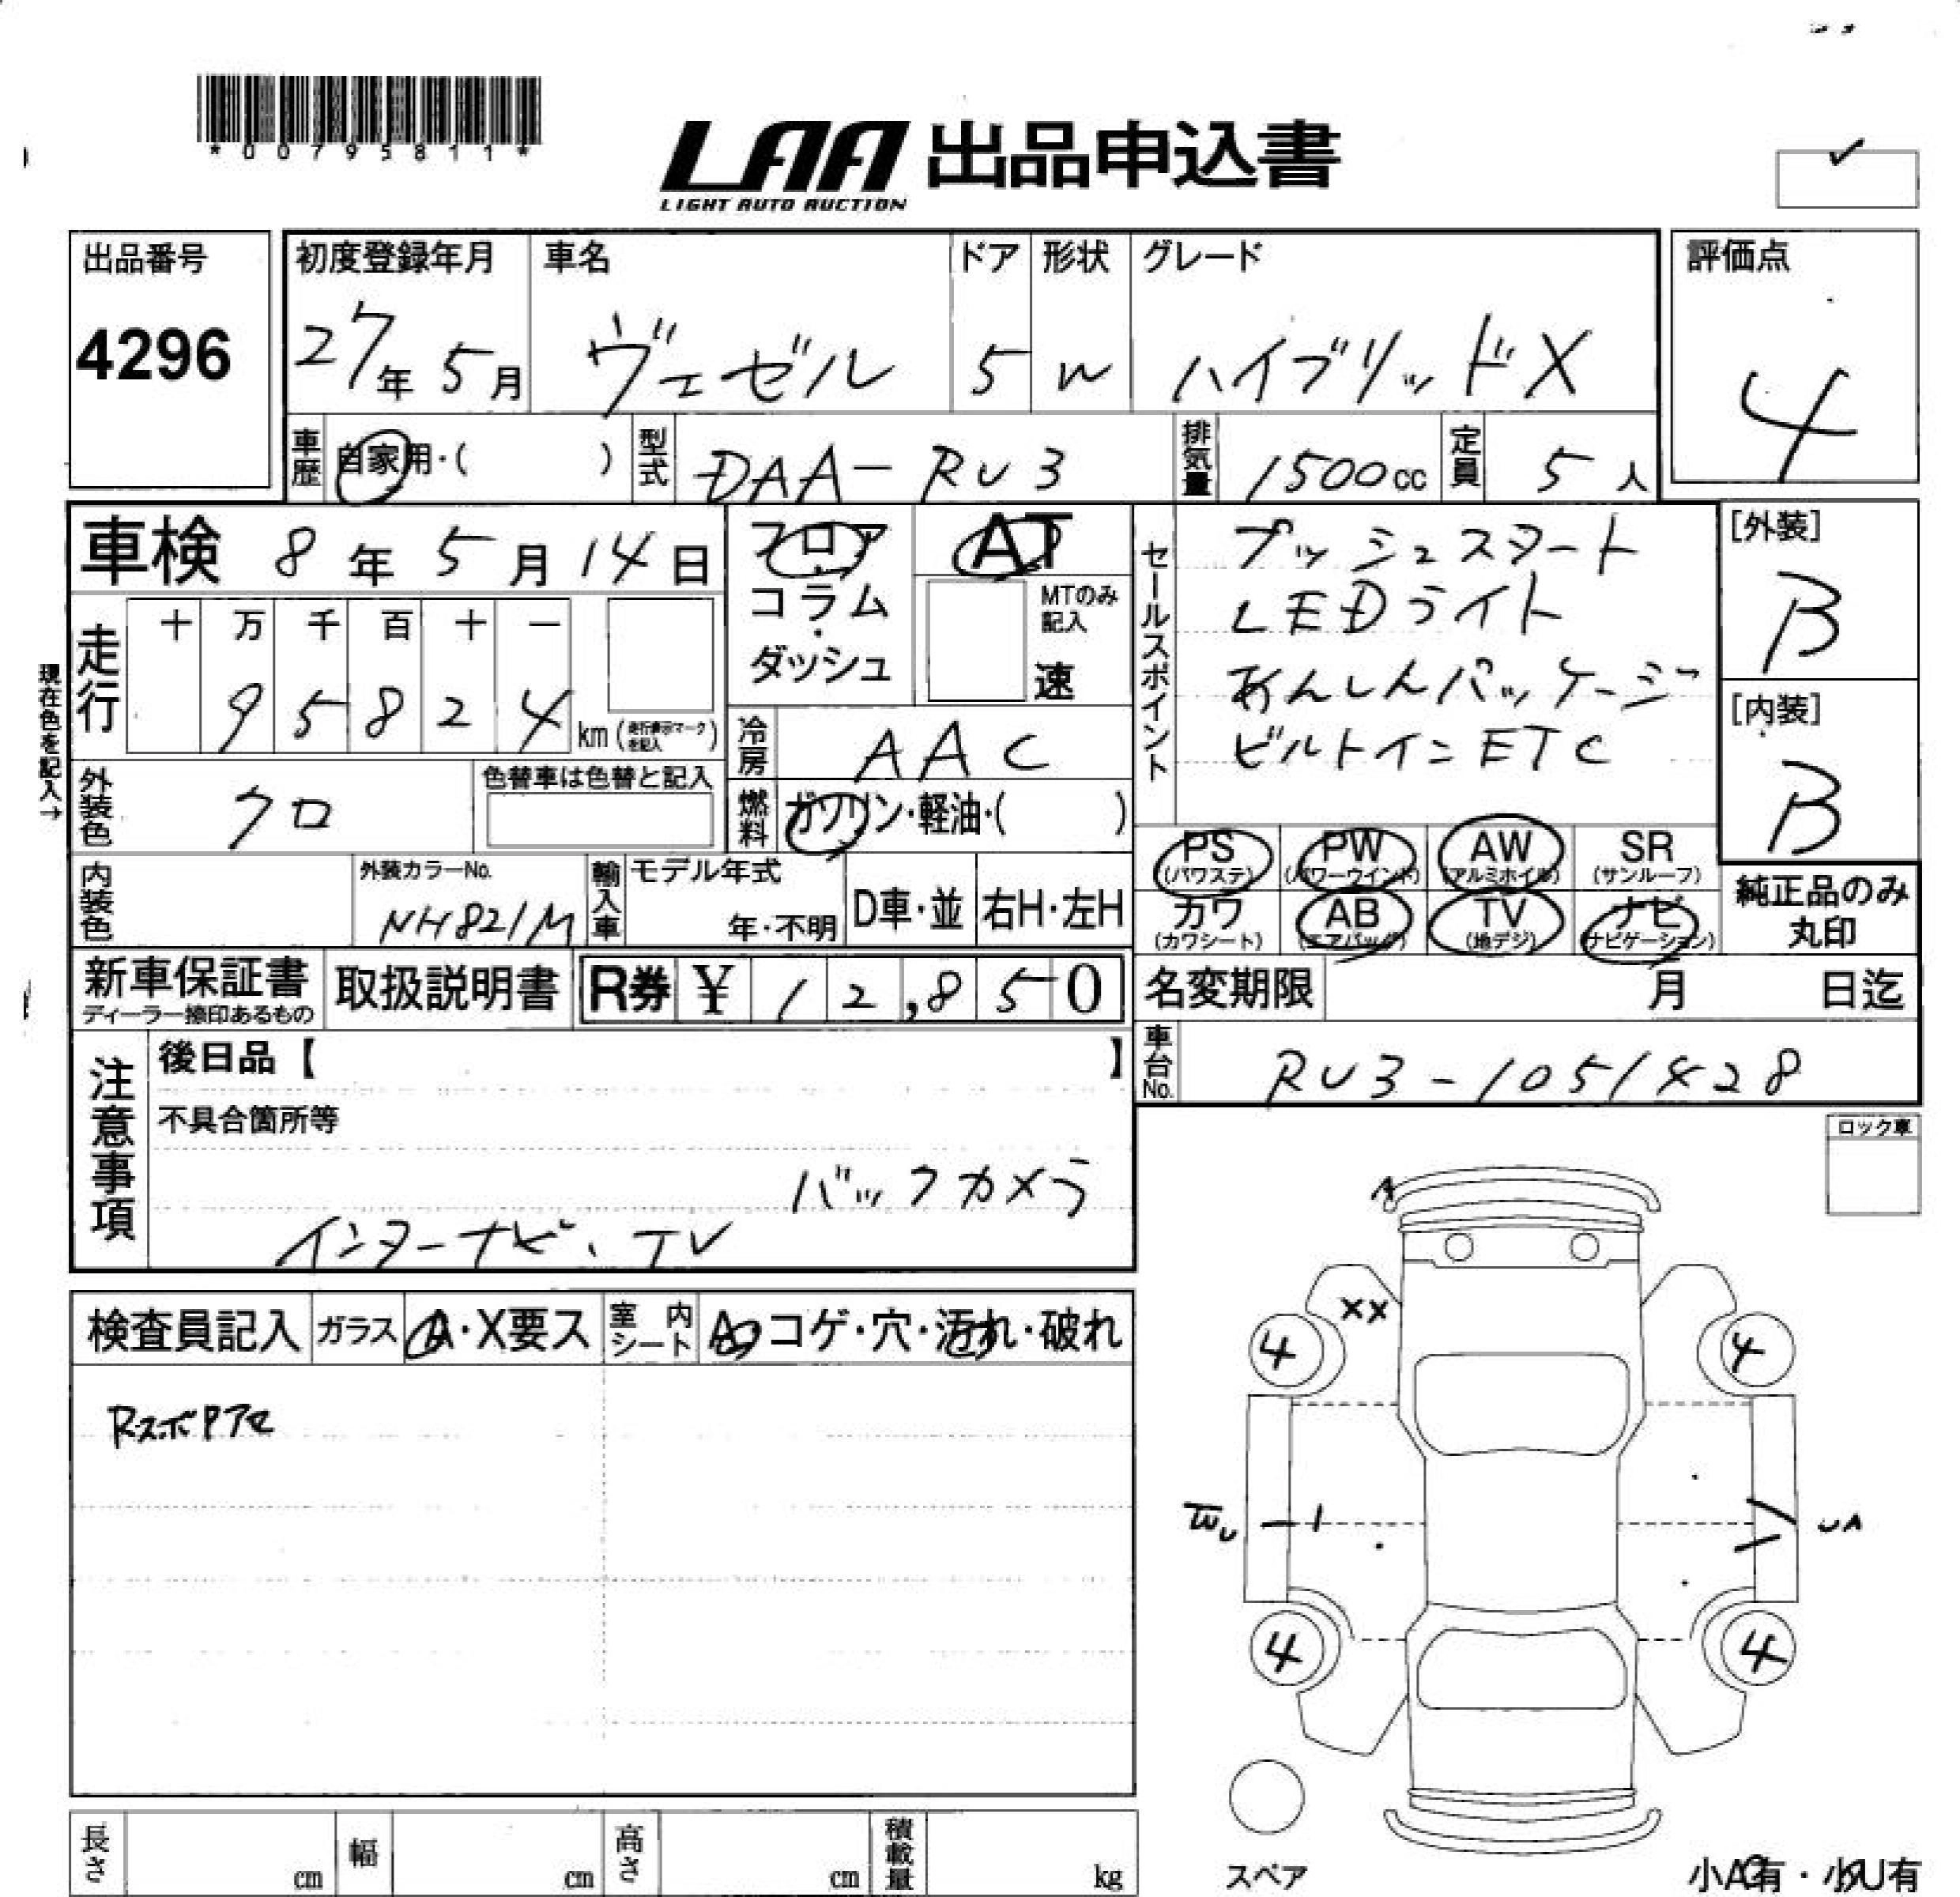 *00795811*
LAA 出品申込書
LIGHT AUTO AUCTION
出品番号
4296
初度登録年月
27年5月
車名
ヴェゼル
ドア
5
形状
W
グレード
ハイブリッドX
評価点
4
車歴
自家用・( )
型式
DAA-RU3
排気量
1500cc
定員
5人
車検 8年5月14日
フロア
・
コラム
・
ダッシュ
AT
MTのみ
記入
速
セールスポイント
プッシュスタート
LEDライト
あんしんパッケージ
ビルトインETC
[外装]
B
[内装]
B
現在色を記入→
走行
十 万 千 百 十 一
9 5 8 2 4 km(走行表示マークを記入)
冷房
AAC
外装色
クロ
色替車は色替と記入
燃料
ガソリン・軽油・( )
PS
(パワステ)
PW
(パワーウインド)
AW
(アルミホイル)
SR
(サンルーフ)
カワ
(カワシート)
AB
(エアバッグ)
TV
(地デジ)
ナビ
(ナビゲーション)
純正品のみ
丸印
内装色
外装カラーNo.
NH821M
輸入車
モデル年式
年・不明
D車・並
右H・左H
新車保証書
ディーラー捺印あるもの
取扱説明書
R券 ¥ 12,850
名変期限 月 日迄
車台No.
RU3-1051428
注意事項
後日品【 】
不具合箇所等
バックカメラ
インターナビ、TV
ロック車
検査員記入
ガラス
A・X要ス
室内
シート
A・コゲ・穴・汚れ・破れ
RスポPアセ
A
XX
4
4
U
UA
4
4
スペア
長さ cm
幅 cm
高さ cm
積載量 kg
小A有・小U有